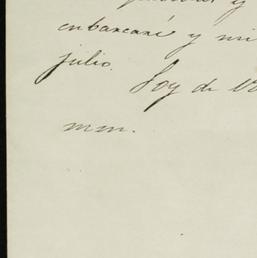 y
embarcaré y mi
julio.
Soy de V
mm.